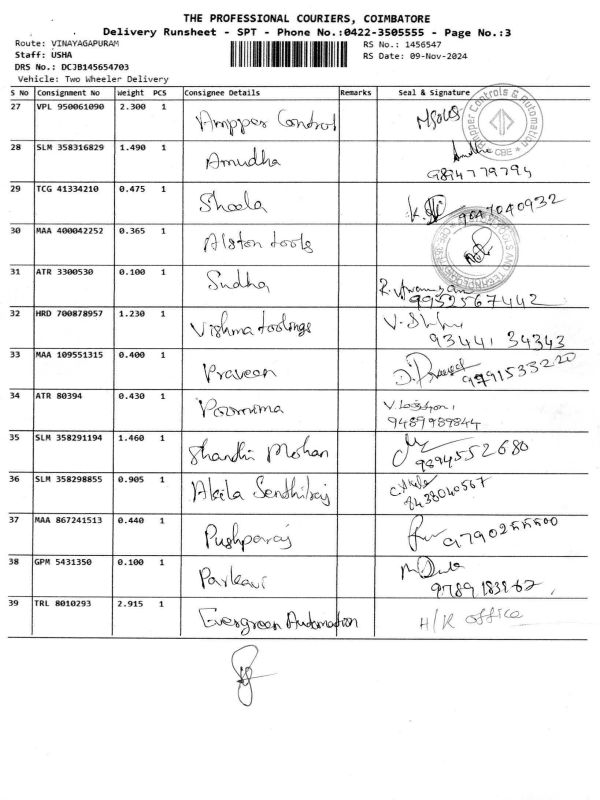 THE PROFESSIONAL COURIERS, COIMBATORE
Delivery Runsheet - SPT - Phone No.:0422-3505555 - Page No.:3
Route: VINAYAGAPURAM
RS No.: 1456547
Staff: USHA
RS Date: 09-Nov-2024
DRS No.: DCJB145654703
Vehicle: Two Wheeler Delivery
S No Consignment No Weight PCS Consignee Details Remarks Seal & Signature
27 VPL 950061090 2.300 1 Ampper Control
Ampper Controls & Automation
CBE
28 SLM 358316829 1.490 1 Amudha
9894779794
29 TCG 41334210 0.475 1 Sheela
9047040932
30 MAA 400042252 0.365 1 Alston tools
31 ATR 3300530 0.100 1 Sudha
9952567442
32 HRD 700878957 1.230 1 Vishma toolings
93441 34343
33 MAA 109551315 0.400 1 Praveen
9791533220
34 ATR 80394 0.430 1 Poornima
9489989844
35 SLM 358291194 1.460 1 Shandhi Mohan
9894552680
36 SLM 358298855 0.905 1 Akila Senthilraj
8438040567
37 MAA 867241513 0.440 1 Pushparaj
38 GPM 5431350 0.100 1 Parkavi
39 TRL 8010293 2.915 1 Evergreen Automation H/K office